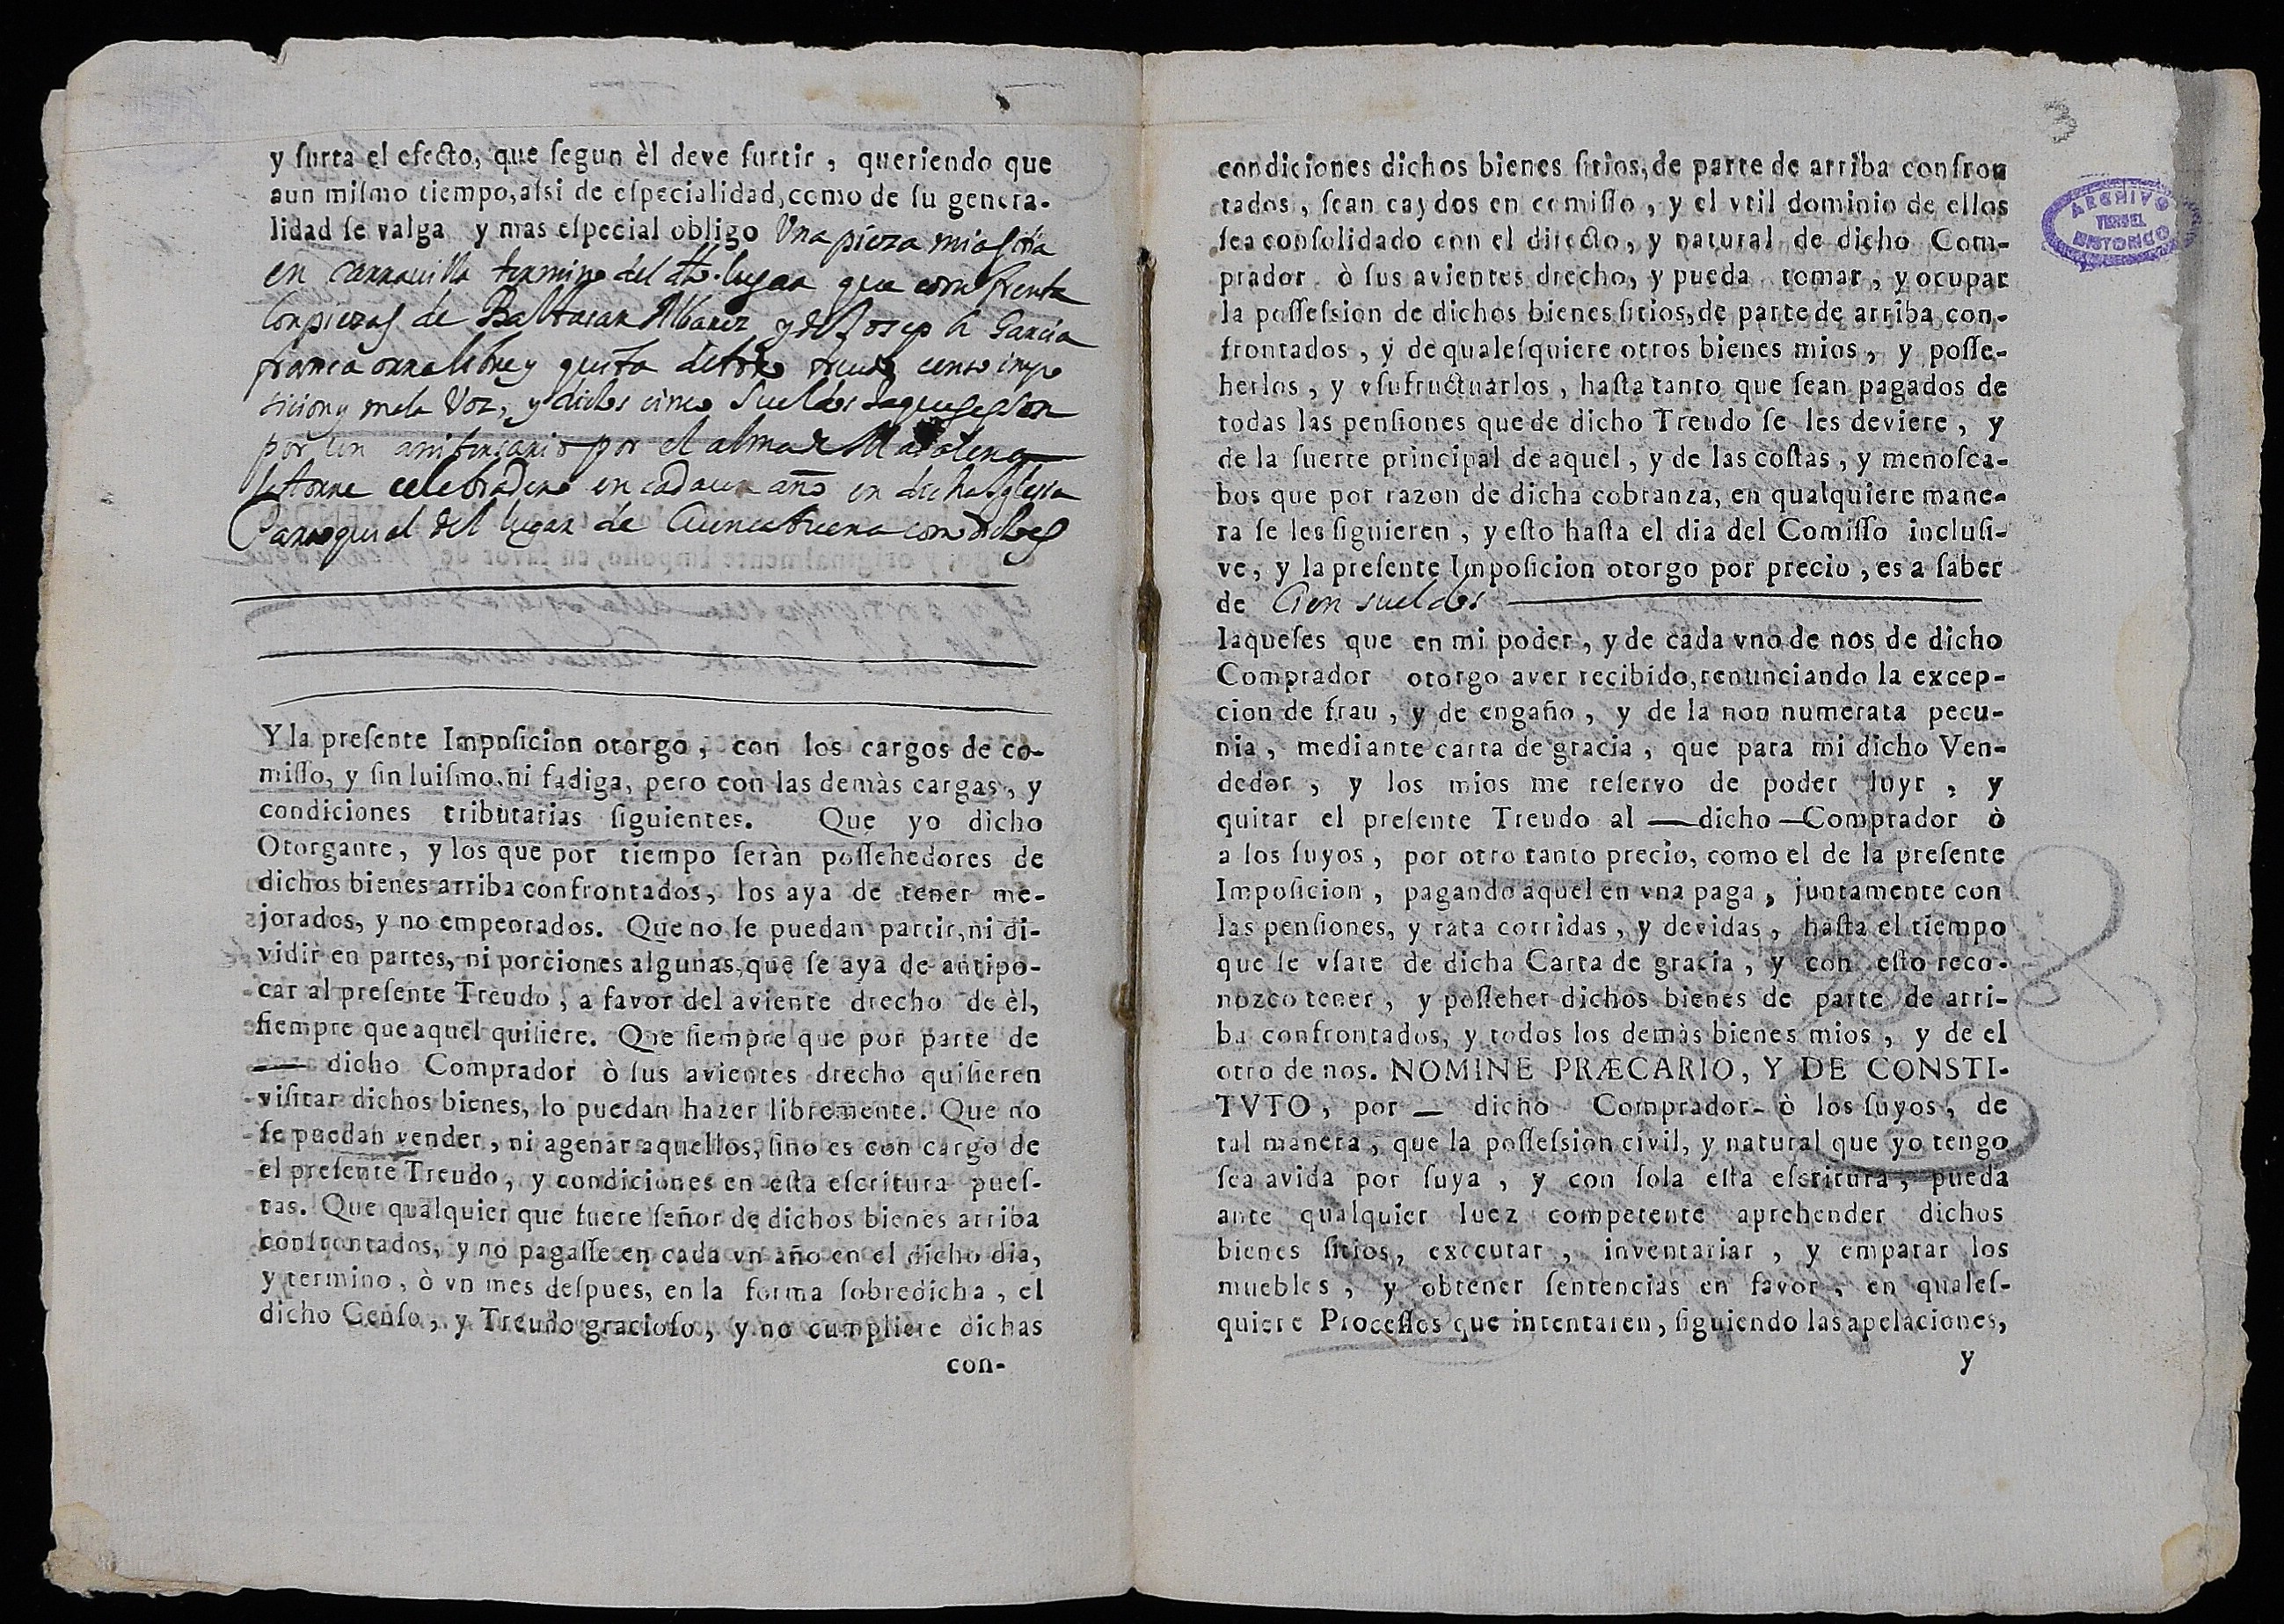 y surta el efecto, que segun èl deve surtir, queriendo que
aun mismo tiempo, assi de especialidad, como de su genera-
lidad se valga y mas especial obligo Una pieza mia sitia
en carraquilla termino del dho. lugar que confrenta
con piezas de Baltasar Albarez y de Joseph Garcia
franca onra libre y quita de treudo censo impo
sicion y mala Voz, y dichos cinco sueldos Jaqueses son
por un anibersario por el alma de Madalena
Latorre celebradero en cada un año en dicha Iglesia
Parroquial del lugar de Cuencabuena con dichos
Y la presente Imposicion otorgo, con los cargos de co-
misso, y sin luismo, ni fadiga, pero con las demàs cargas, y
condiciones tributarias siguientes. Que yo dicho
Otorgante, y los que por tiempo seràn possehedores de
dichos bienes arriba confrontados, los aya de tener me-
jorados, y no empeorados. Que no se puedan partir, ni di-
vidir en partes, ni porciones algunas, que se aya de antipo-
car al presente Treudo, a favor del aviente drecho de èl,
siempre que aquel quisiere. Que siempre que por parte de
— dicho Comprador ò sus avientes drecho quisieren
visitar dichos bienes, lo puedan hazer libremente. Que no
se puedan vender, ni agenar aquellos, sino es con cargo de
el presente Treudo, y condiciones en esta escritura pues-
tas. Que qualquier que fuere señor de dichos bienes arriba
confrontados, y no pagasse en cada vn año en el dicho dia,
y termino, ò vn mes despues, en la forma sobredicha, el
dicho Censo, y Treudo gracioso, y no cumpliere dichas
con-
3
condiciones dichos bienes sitios, de parte de arriba confron
tados, sean caydos en comisso, y el vtil dominio de ellos
sea consolidado con el directo, y natural de dicho Com-
prador ò sus avientes drecho, y pueda tomar, y ocupar
la possession de dichos bienes sitios, de parte de arriba con-
frontados, y de qualesquiere otros bienes mios, y posse-
herlos, y vsufructuarlos, hasta tanto que sean pagados de
todas las pensiones que de dicho Treudo se les deviere, y
de la suerte principal de aquel, y de las costas, y menosca-
bos que por razon de dicha cobranza, en qualquiere mane-
ra se les siguieren, y esto hasta el dia del Comisso inclusi-
ve, y la presente Imposicion otorgo por precio, es a saber
de Cien sueldos
Iaqueses que en mi poder, y de cada vno de nos de dicho
Comprador otorgo aver recibido, renunciando la excep-
cion de frau, y de engaño, y de la non numerata pecu-
nia, mediante carta de gracia, que para mi dicho Ven-
dedor, y los mios me reservo de poder luyr, y
quitar el presente Treudo al — dicho — Comprador ò
a los suyos, por otro tanto precio, como el de la presente
Imposicion, pagando aquel en vna paga, juntamente con
las pensiones, y rata corridas, y devidas, hasta el tiempo
que se vsare de dicha Carta de gracia, y con esto reco-
nozco tener, y posseher dichos bienes de parte de arri-
ba confrontados, y todos los demàs bienes mios, y de el
otro de nos. NOMINE PRÆCARIO, Y DE CONSTI-
TVTO, por — dicho Comprador- ò los suyos, de
tal manera, que la possession civil, y natural que yo tengo
sea avida por suya, y con sola esta escritura, pueda
ante qualquier Iuez competente aprehender dichos
bienes sitios, executar, inventariar, y emparar los
muebles, y obtener sentencias en favor, en quales-
quiere Processos que intentaren, siguiendo las apelaciones,
y
ARCHIVO
TERUEL
HISTORICO